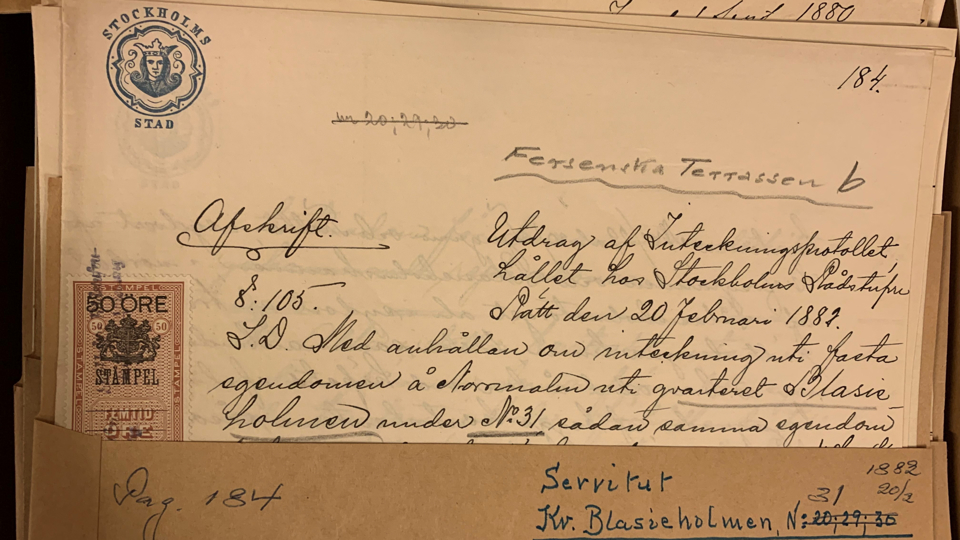 1 Sept. 1880
STOCKHOLMS
STAD
184.
no 20; 29; 30
Fersenska Terrassen b
Afskrift.
Utdrag af Inteckningsprotollet,
hållet hos Stockholms Rådstufvu
§: 105.
Rätt den 20 Februari 1882.
S.D. Med anhållan om inteckning uti fasta
egendomen å Norrmalm uti qvarteret Blasie
holmen under No 31 sådan samma egendom
ST·MPEL
50 ÖRE
50 50
STÄMPEL
FEMTIO
Pag. 184
Servitut
1882
20/2
31
Kv. Blasieholmen, N: 20; 29; 30